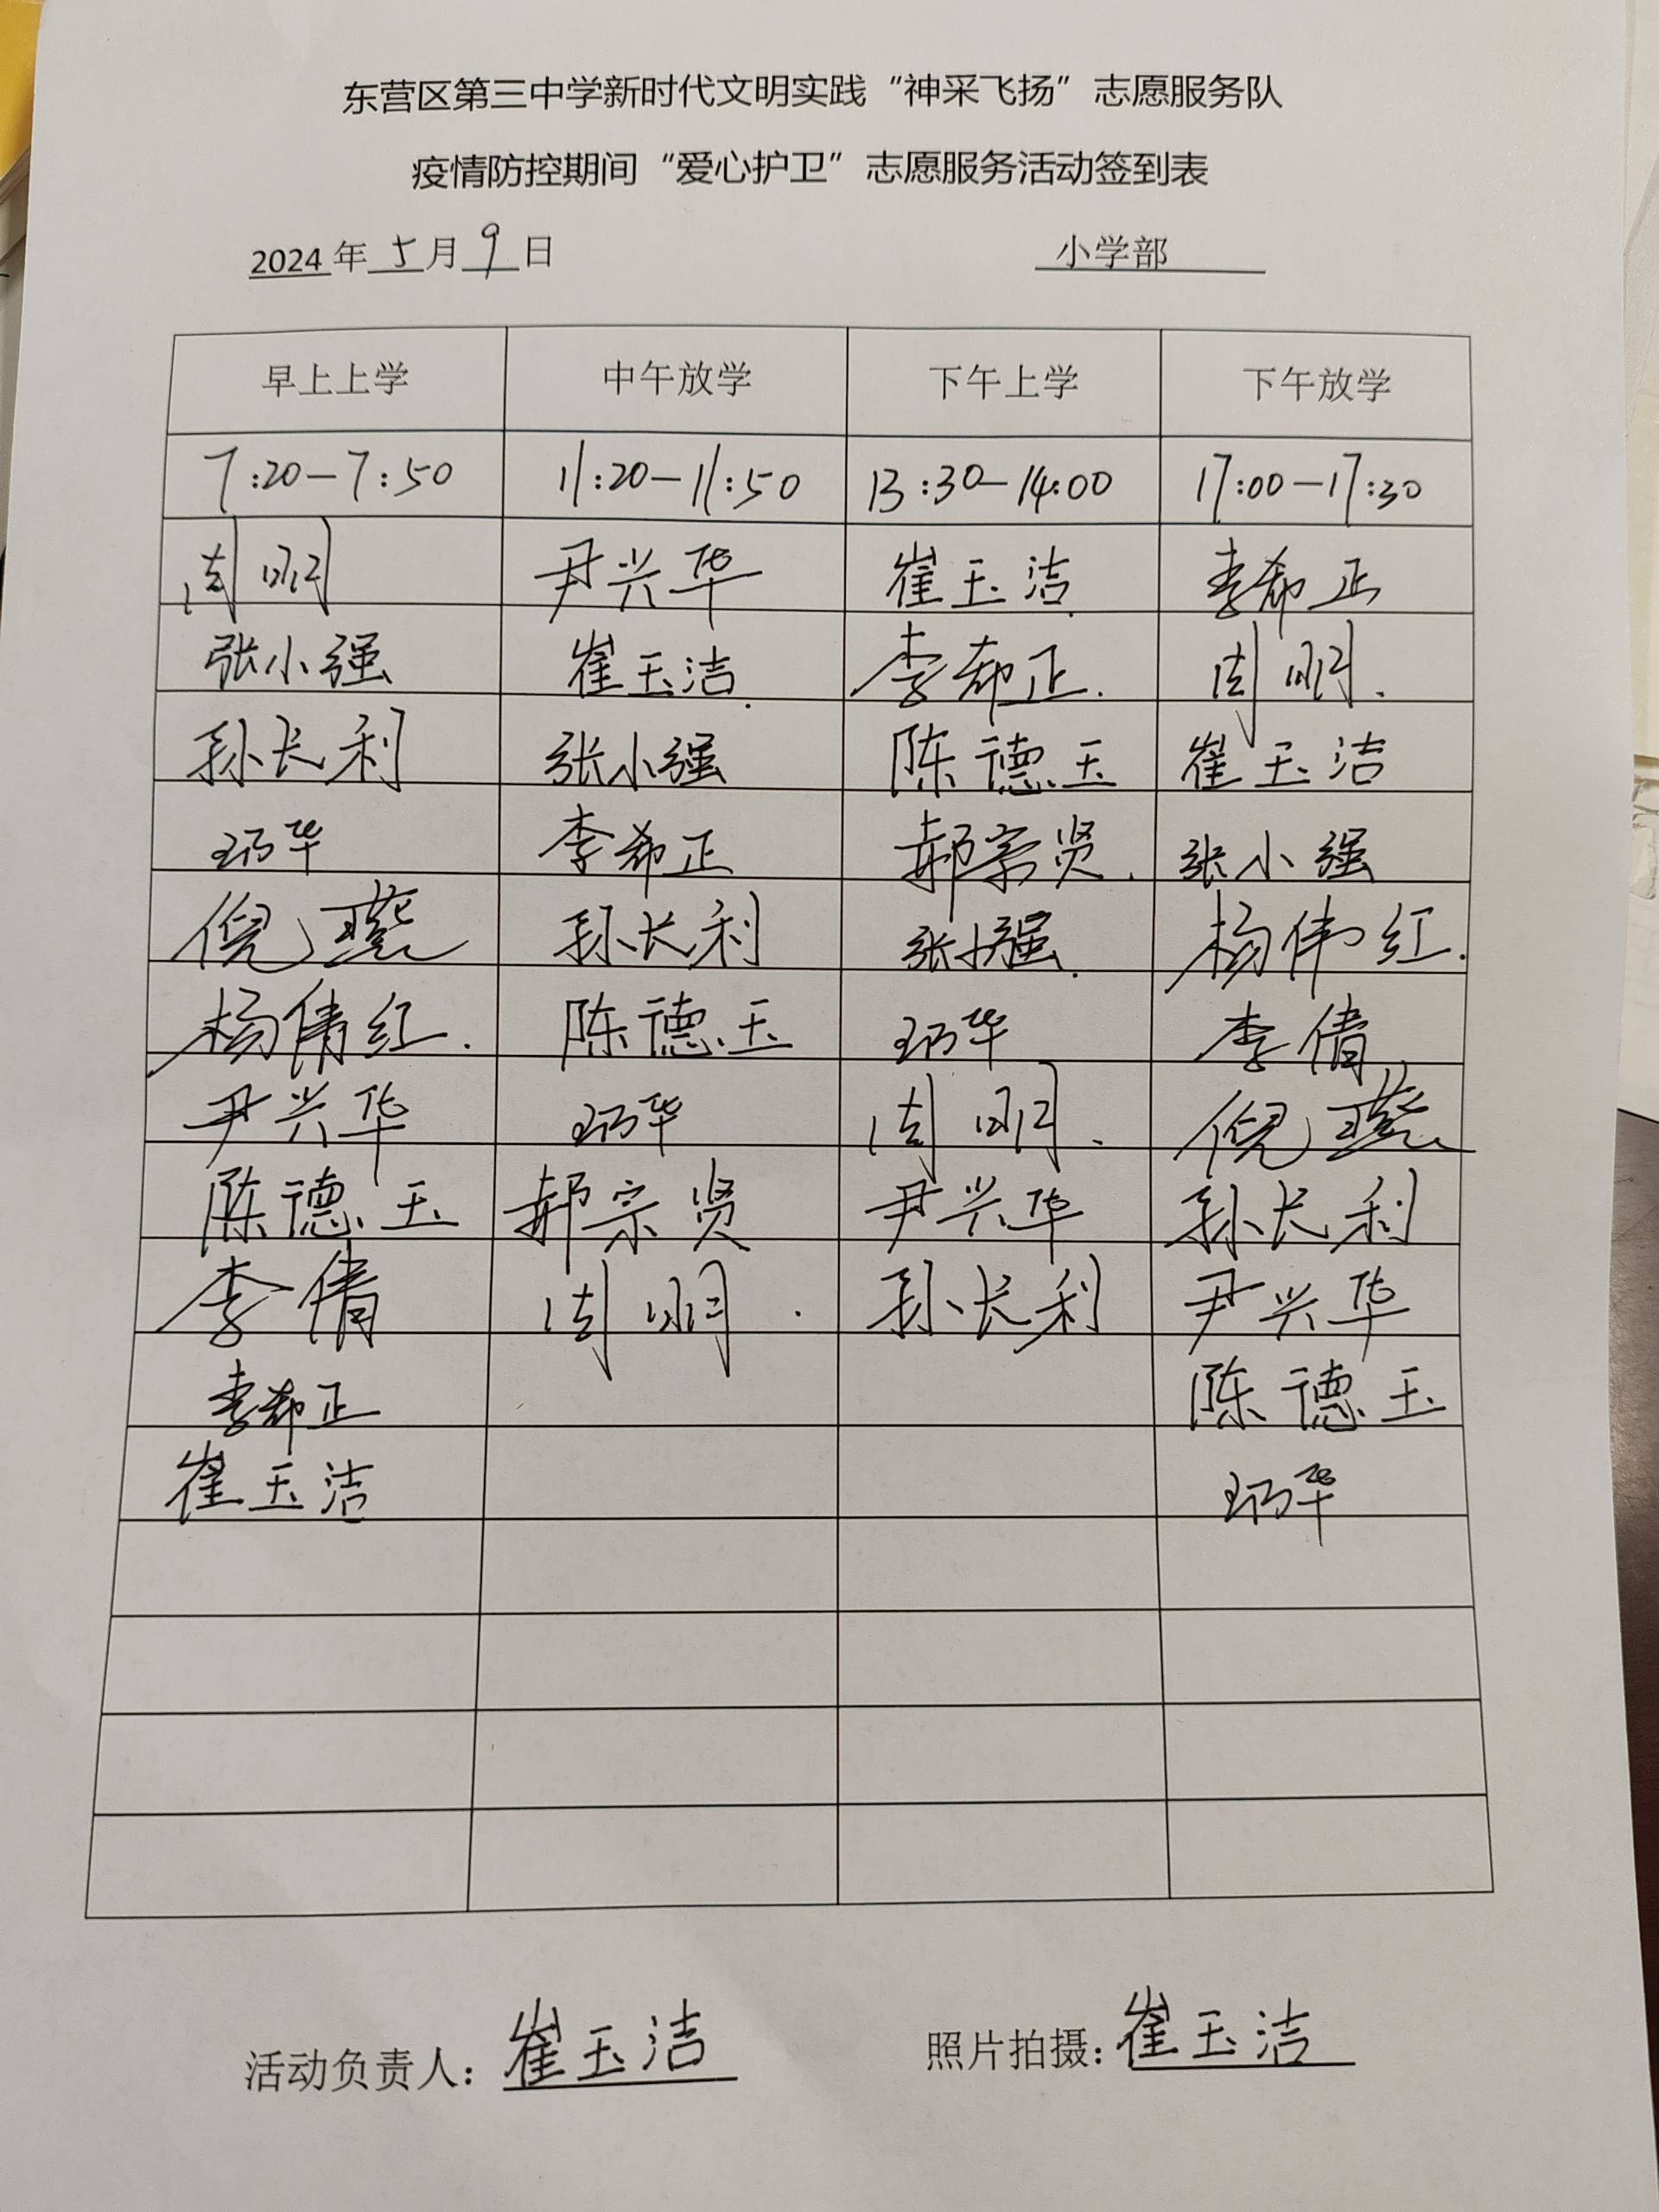 东营区第三中学新时代文明实践“神采飞扬”志愿服务队
疫情防控期间“爱心护卫”志愿服务活动签到表
2024年5月9日 小学部
早上上学 中午放学 下午上学 下午放学
7:20-7:50 11:20-11:50 13:30-14:00 17:00-17:30
周明 尹兴华 崔玉洁 李希正
张小强 崔玉洁 李希正 周明
孙长利 张小强 陈德玉 崔玉洁
李希正 郝宗贤 张小强
倪 孙长利 张小强 杨伟红
杨倩红 陈德玉 李倩
尹兴华 周明 倪
陈德玉 郝宗贤 尹兴华 孙长利
李倩 周明 孙长利 尹兴华
李希正 陈德玉
崔玉洁
活动负责人：崔玉洁 照片拍摄：崔玉洁